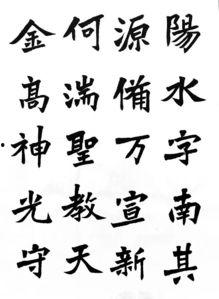 陽水字南其
源備万宣新
何湍聖教天
金髙神光守